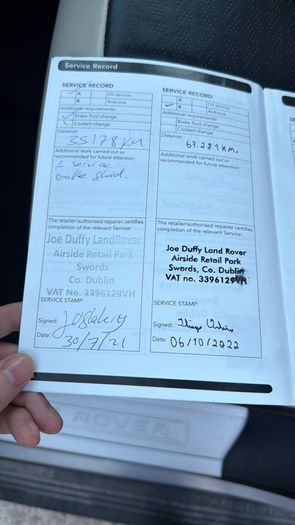 Service Record
SERVICE RECORD
A Oil service
B Ad-blue
Additional requirements:
Brake fluid change
Coolant change
Distance:
35178 KM
Additional work carried out or
recommended for future attention:
service
brake fluid.
The retailer/authorised repairer certifies
completion of the relevant Service:
Joe Duffy LandRover
Airside Retail Park
Swords
Co. Dublin
VAT No. 3396129VH
SERVICE STAMP:
Signed:
Date: 30/7/21
SERVICE RECORD
A Oil service
B
Additional requirements:
Brake fluid change
Coolant change
Distance:
67.281 KM,
Additional work carried out or
recommended for future attention:
The retailer/authorised repairer certifies
completion of the relevant Service:
Joe Duffy Land Rover
Airside Retail Park
Swords, Co. Dublin
VAT no. 3396129VH
SERVICE STAMP:
Signed:
Date: 06/10/2022
ROVER